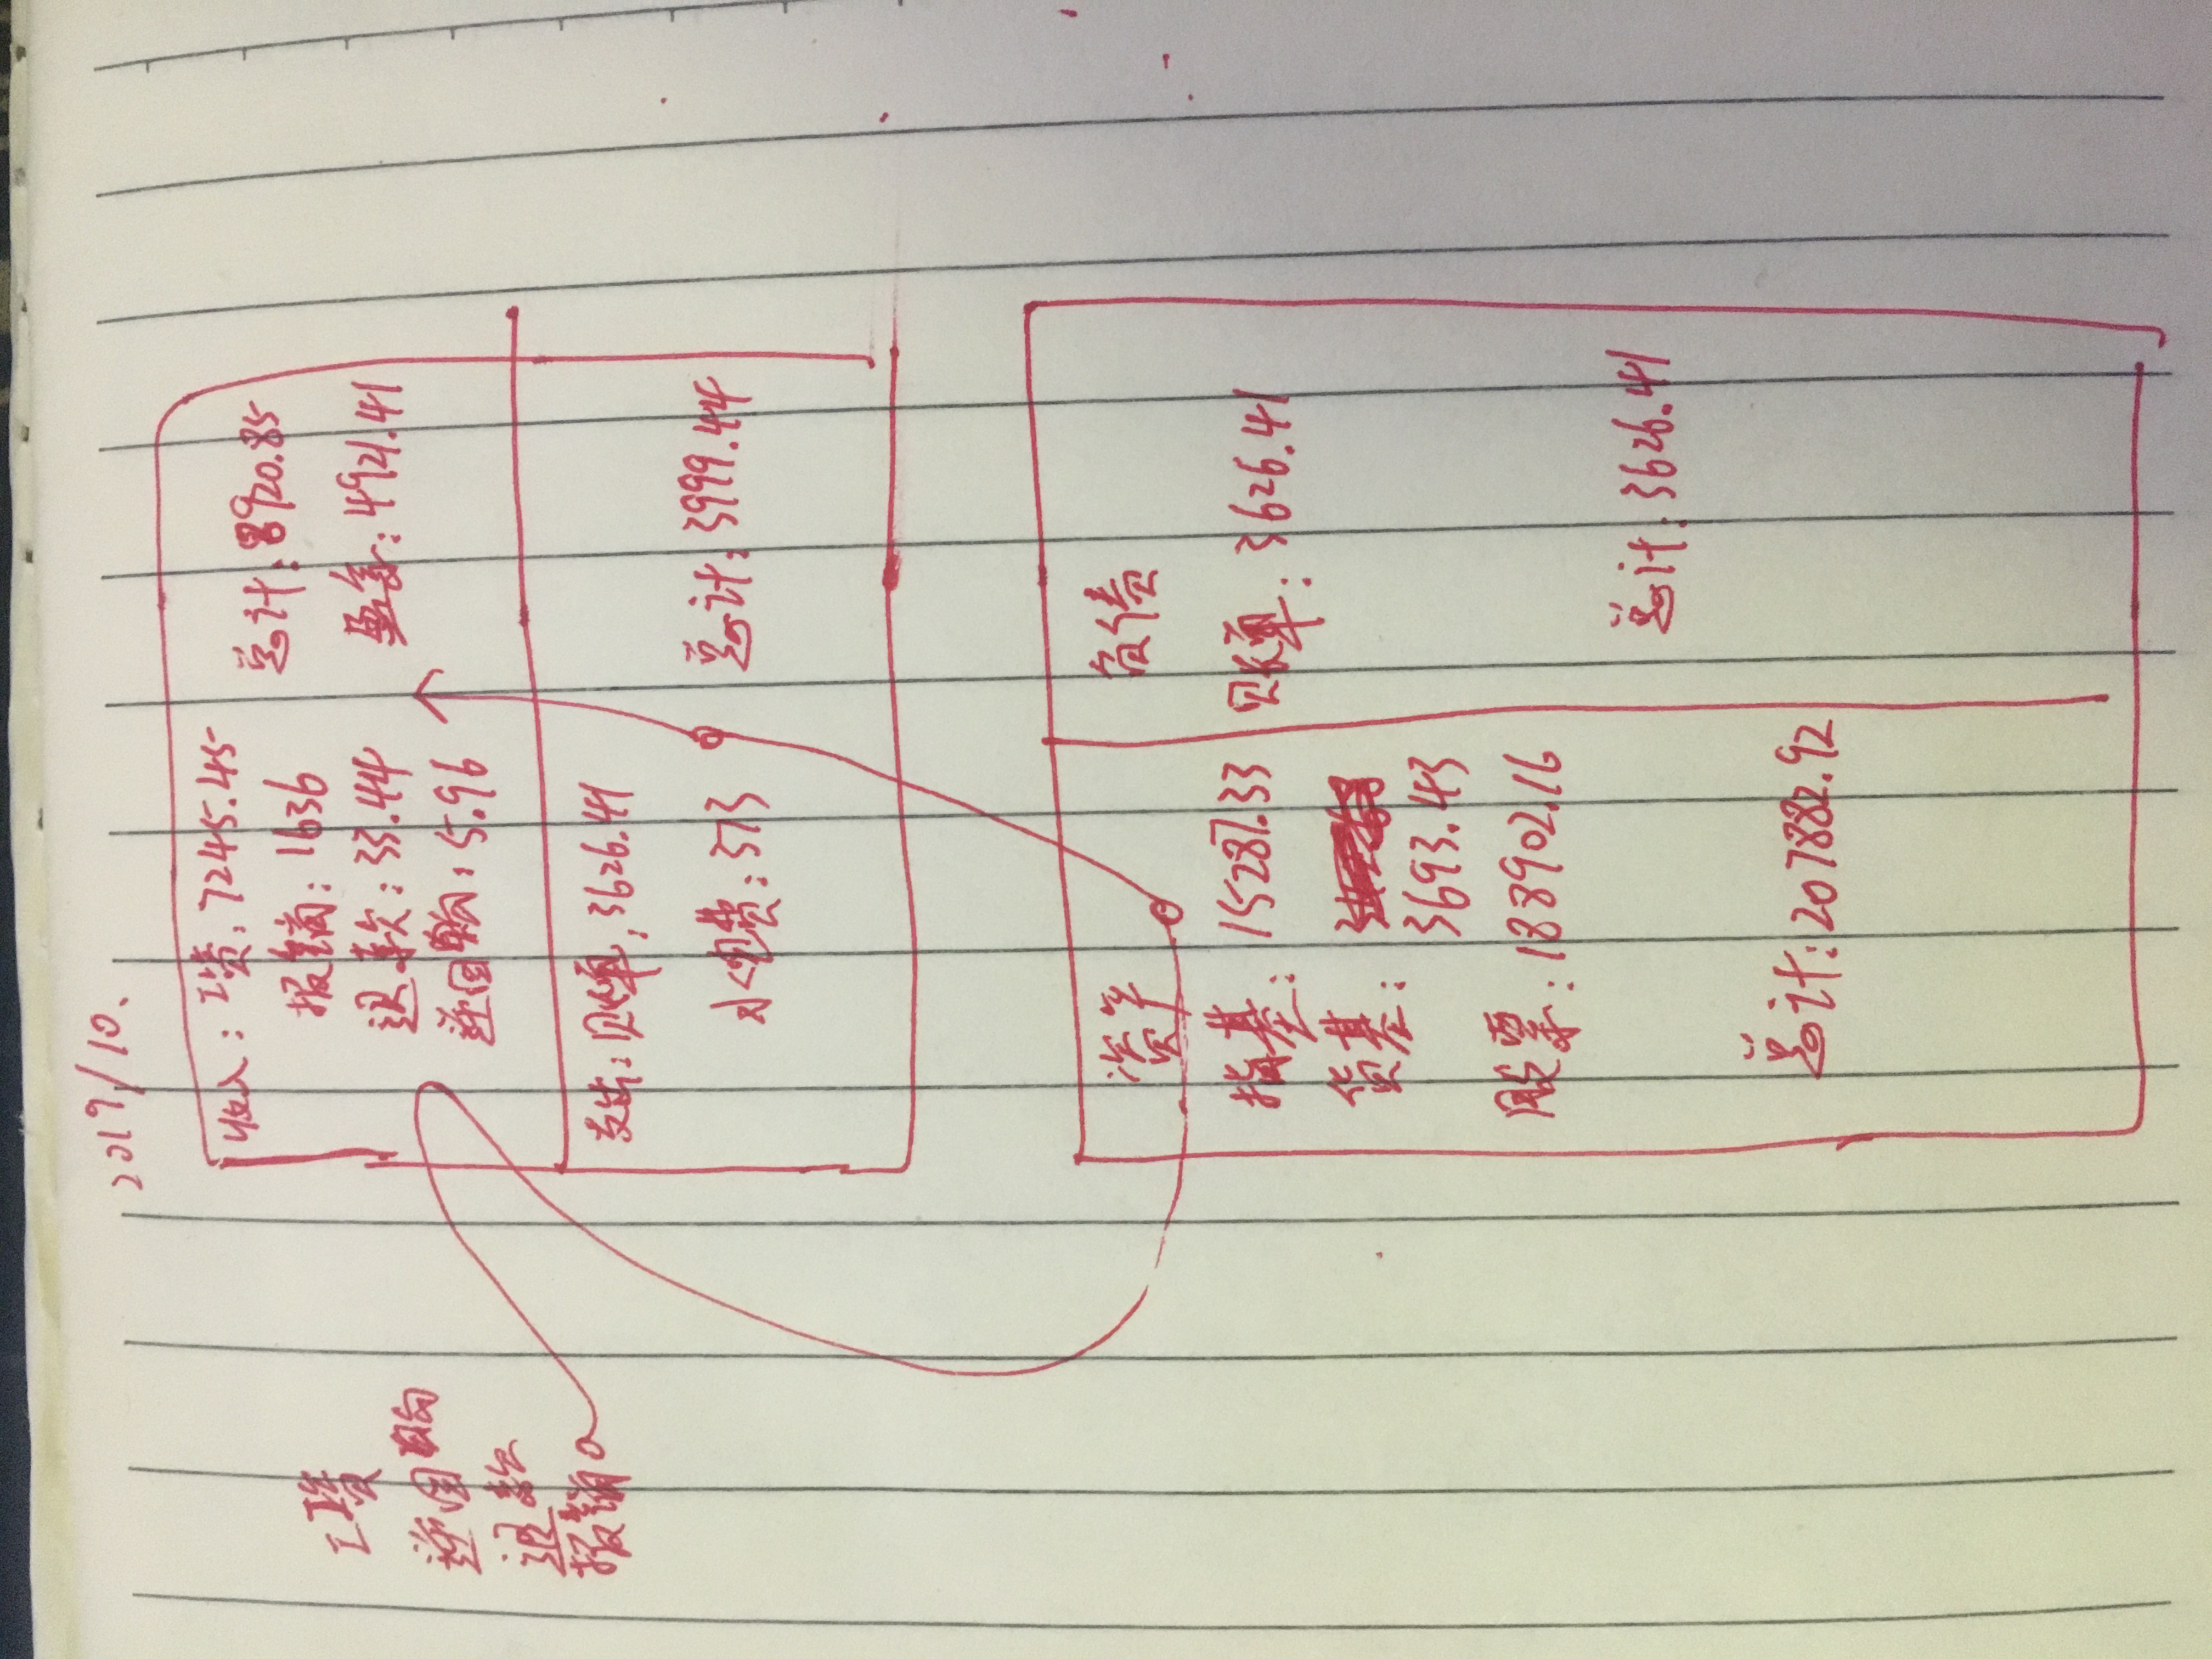 2019/10.
工资
逆回购
退款
报销
收入：工资：7245.45
报销：1636
退款：33.44
逆回购：5.96
总计：8920.85
盈余：4921.41
支出：账单：3626.41
水电费：373
总计：3999.44
资产
指基：15287.33
货基：
3693.43
股票：188902.16
总计：207882.92
负债
账单：3626.41
总计：3626.41